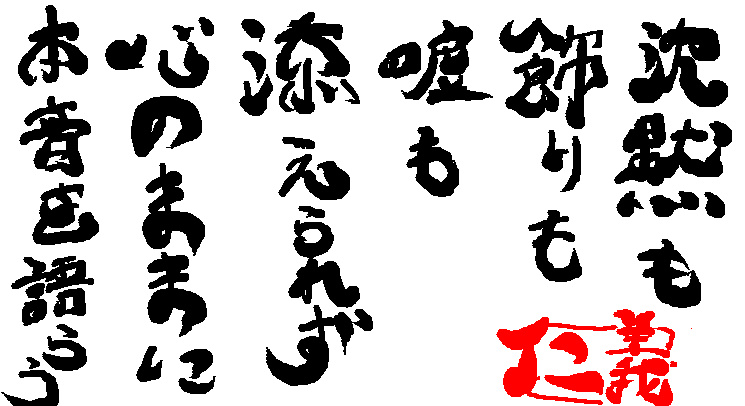 沈黙も
飾りも
嘘も
添えられず
心のままに
本音を語らう
仁義